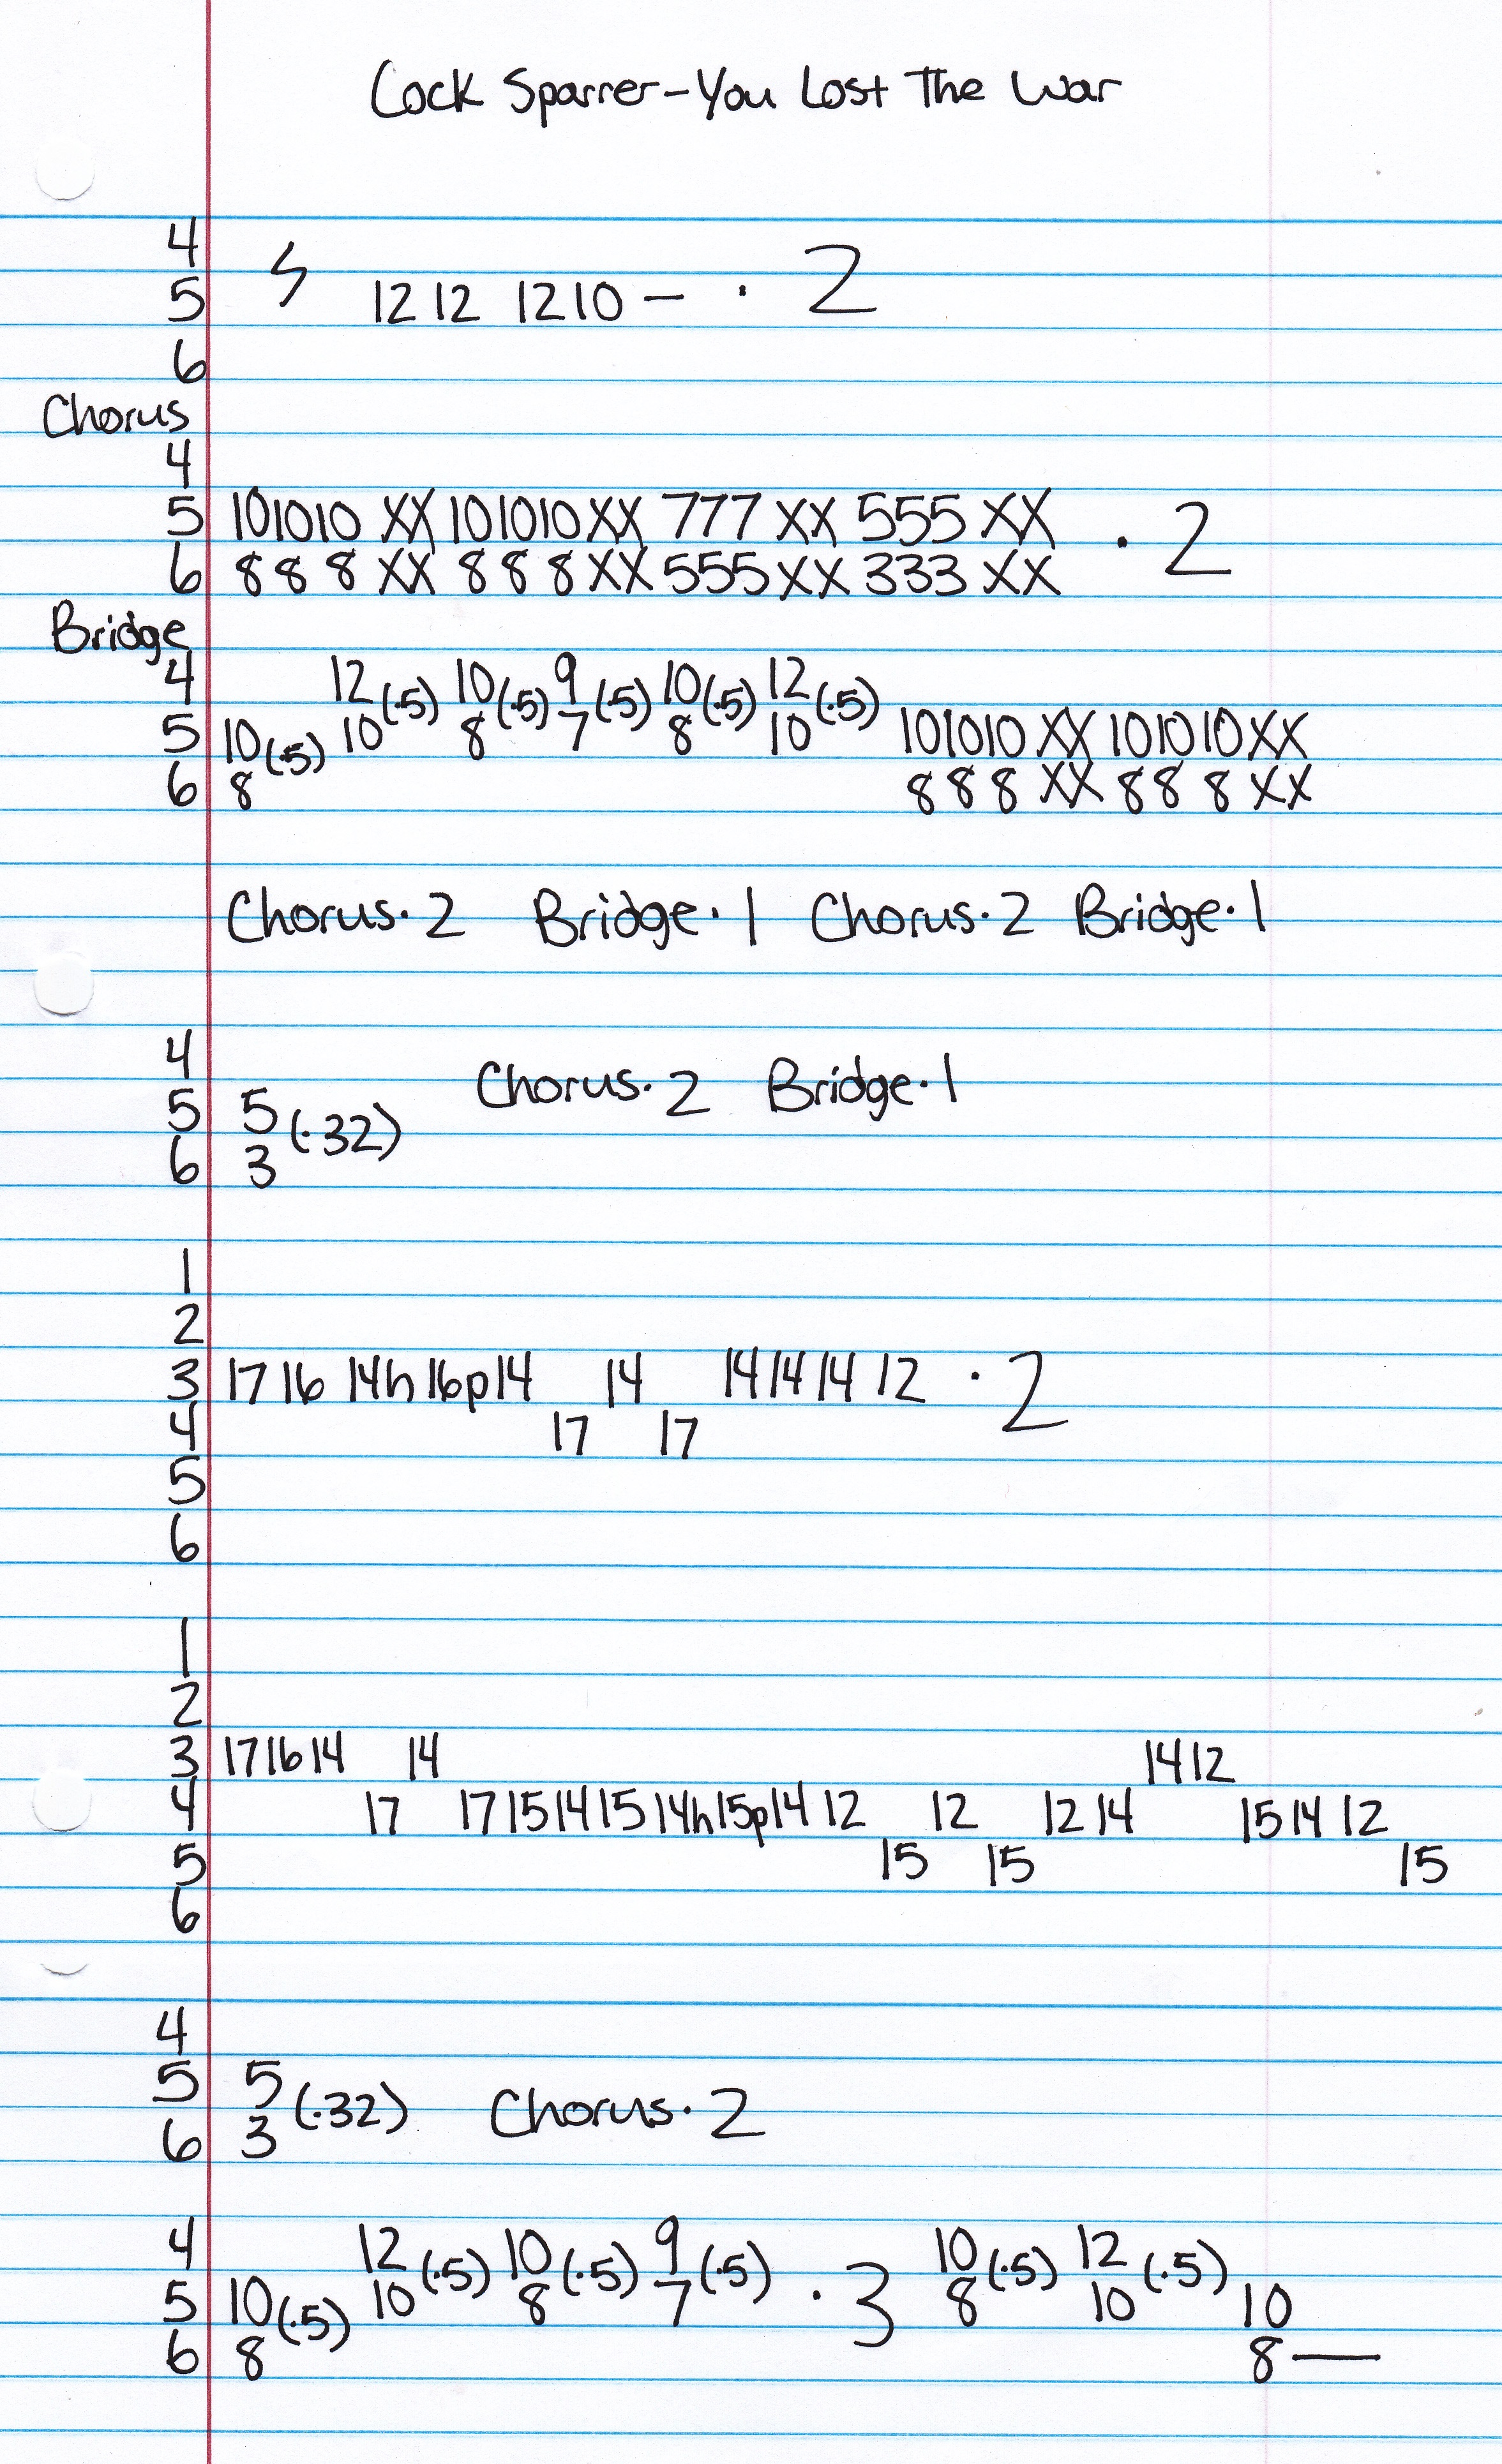 Cock Sparrer-You Lost The War
4
5 ϟ 12 12 12 10 — · 2
6
Chorus
4
5 10 10 10 XX 10 10 10 XX 777 XX 555 XX · 2
6 8 8 8 XX 8 8 8 XX 555 XX 333 XX
Bridge
4 12 (·5) 10 (·5) 9 (·5) 10 (·5) 12 (·5)
5 10 (·5) 10 8 7 8 10 10 10 10 XX 10 10 10 XX
6 8 8 8 8 XX 8 8 8 XX
Chorus·2 Bridge·1 Chorus·2 Bridge·1
4
5 5 (·32) Chorus·2 Bridge·1
6 3
1
2
3 17 16 14h 16p 14 14 14 14 14 12 · 2
4 17 17
5
6
1
2
3 17 16 14 14 14 12
4 17 17 15 14 15 14h 15p 14 12 12 12 14 15 14 12
5 15 15 15
6
4
5 5 (·32) Chorus·2
6 3
4 12 (·5) 10 (·5) 9 (·5) · 3 10 (·5) 12 (·5)
5 10 (·5) 10 8 7 8 10 10
6 8 8 —